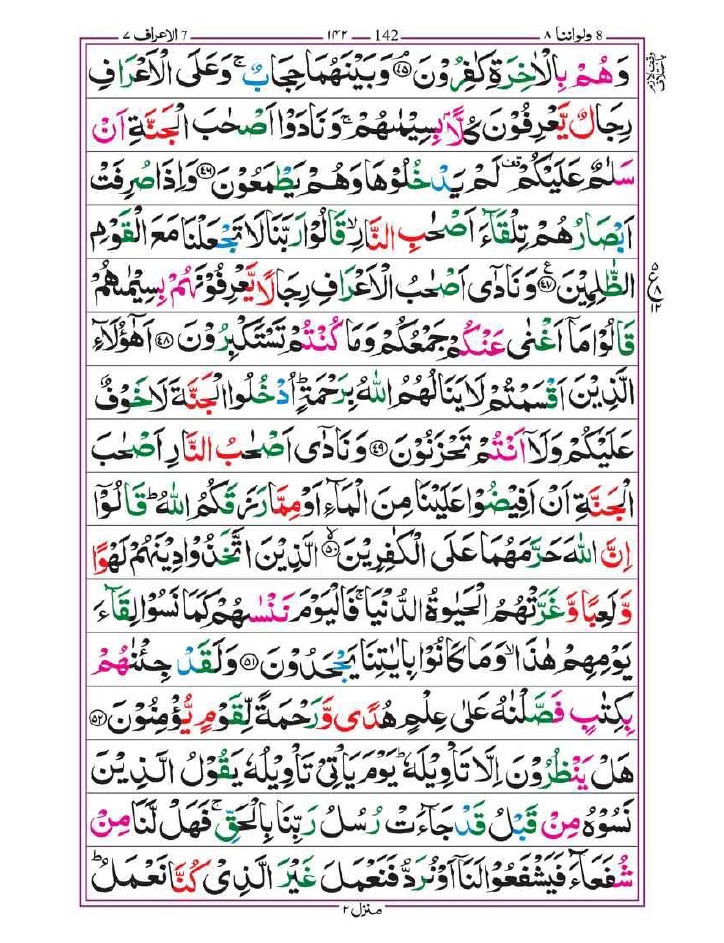 8 ولواننا ٨ — 142 — ١٤٢ 7 الاعراف ٧
وَهُمْ بِالْاٰخِرَةِ كٰفِرُوْنَ ﴿۴۵﴾ وَبَيْنَهُمَا حِجَابٌ ۚ وَعَلَى الْاَعْرَافِ
وقف لازم
باختلاف
رِجَالٌ يَّعْرِفُوْنَ كُلًّاۢ بِسِيْمٰىهُمْ ۚ وَنَادَوْا اَصْحٰبَ الْجَنَّةِ اَنْ
سَلٰمٌ عَلَيْكُمْ ۣ لَمْ يَدْخُلُوْهَا وَهُمْ يَطْمَعُوْنَ ﴿۴۶﴾ وَاِذَا صُرِفَتْ
اَبْصَارُهُمْ تِلْقَآءَ اَصْحٰبِ النَّارِ ۙ قَالُوْا رَبَّنَا لَا تَجْعَلْنَا مَعَ الْقَوْمِ
الظّٰلِمِيْنَ ﴿۴۷﴾ وَنَادٰٓى اَصْحٰبُ الْاَعْرَافِ رِجَالًا يَّعْرِفُوْنَهُمْ بِسِيْمٰىهُمْ
ع ٥ ٨ ١٢
قَالُوْا مَآ اَغْنٰى عَنْكُمْ جَمْعُكُمْ وَمَا كُنْتُمْ تَسْتَكْبِرُوْنَ ﴿۴۸﴾ اَهٰٓؤُلَآءِ
الَّذِيْنَ اَقْسَمْتُمْ لَا يَنَالُهُمُ اللّٰهُ بِرَحْمَةٍ ؕ اُدْخُلُوا الْجَنَّةَ لَا خَوْفٌ
عَلَيْكُمْ وَلَآ اَنْتُمْ تَحْزَنُوْنَ ﴿۴۹﴾ وَنَادٰٓى اَصْحٰبُ النَّارِ اَصْحٰبَ
الْجَنَّةِ اَنْ اَفِيْضُوْا عَلَيْنَا مِنَ الْمَآءِ اَوْ مِمَّا رَزَقَكُمُ اللّٰهُ ؕ قَالُوْٓا
اِنَّ اللّٰهَ حَرَّمَهُمَا عَلَى الْكٰفِرِيْنَ ﴿۵۰﴾ الَّذِيْنَ اتَّخَذُوْا دِيْنَهُمْ لَهْوًا
وَّلَعِبًا وَّغَرَّتْهُمُ الْحَيٰوةُ الدُّنْيَا ۚ فَالْيَوْمَ نَنْسٰىهُمْ كَمَا نَسُوْا لِقَآءَ
يَوْمِهِمْ هٰذَا ۙ وَمَا كَانُوْا بِاٰيٰتِنَا يَجْحَدُوْنَ ﴿۵۱﴾ وَلَقَدْ جِئْنٰهُمْ
بِكِتٰبٍ فَصَّلْنٰهُ عَلٰى عِلْمٍ هُدًى وَّرَحْمَةً لِّقَوْمٍ يُّؤْمِنُوْنَ ﴿۵۲﴾
هَلْ يَنْظُرُوْنَ اِلَّا تَاْوِيْلَهٗ ؕ يَوْمَ يَاْتِيْ تَاْوِيْلُهٗ يَقُوْلُ الَّذِيْنَ
نَسُوْهُ مِنْ قَبْلُ قَدْ جَآءَتْ رُسُلُ رَبِّنَا بِالْحَقِّ ۚ فَهَلْ لَّنَا مِنْ
شُفَعَآءَ فَيَشْفَعُوْا لَنَآ اَوْ نُرَدُّ فَنَعْمَلَ غَيْرَ الَّذِيْ كُنَّا نَعْمَلُ ؕ
منزل ٢